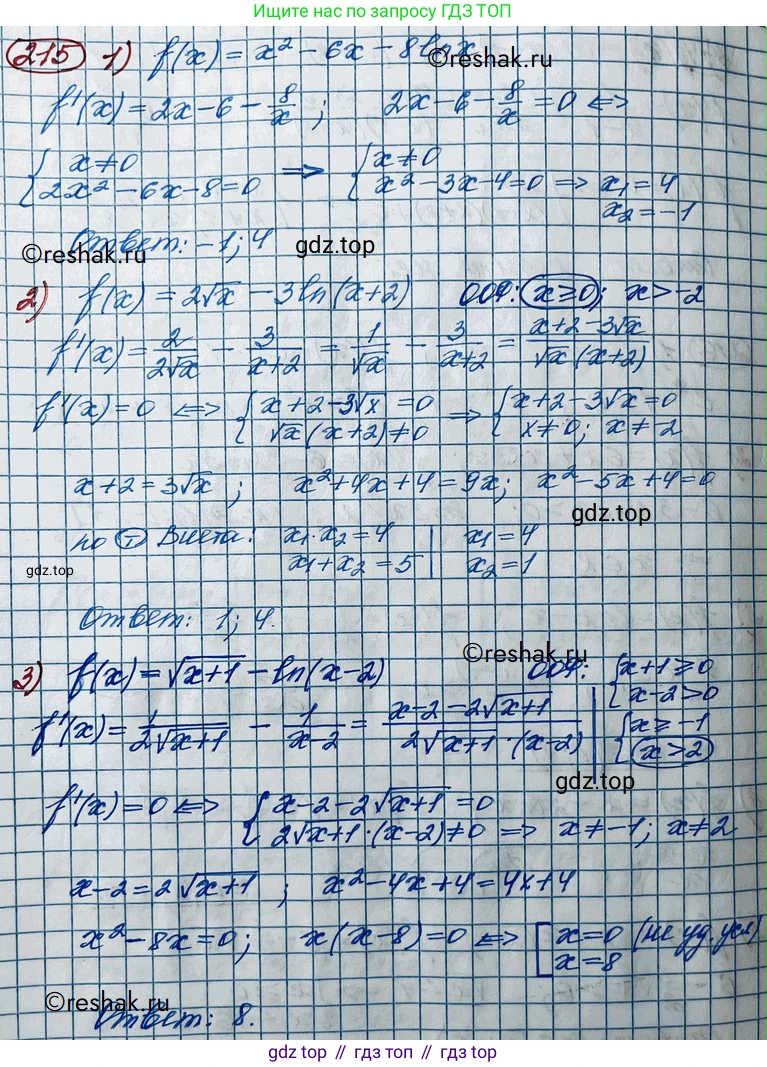 Ищите по запросу ГДЗ ТОП
215 1) f(x) = x² - 6x - 8lnx
©reshak.ru
f'(x) = 2x - 6 - 8/x ; 2x - 6 - 8/x = 0 <=>
{ x ≠ 0
2x² - 6x - 8 = 0 => { x ≠ 0
x² - 3x - 4 = 0 => x₁ = 4
x₂ = -1
Ответ: -1; 4
©reshak.ru gdz.top
2) f(x) = 2√x - 3ln(x+2) ООФ: x≥0; x>-2
f'(x) = 2/(2√x) - 3/(x+2) = 1/√x - 3/(x+2) = (x+2-3√x)/(√x(x+2))
f'(x) = 0 <=> { x+2-3√x = 0
√x(x+2) ≠ 0 => { x+2-3√x = 0
x ≠ 0; x ≠ -2
x+2 = 3√x ; x²+4x+4 = 9x; x²-5x+4 = 0
gdz.top
по т Виета: x₁·x₂ = 4 | x₁ = 4
x₁+x₂ = 5 | x₂ = 1
gdz.top
Ответ: 1; 4.
©reshak.ru
3) f(x) = √(x+1) - ln(x-2) ООФ: { x+1≥0
x-2>0
f'(x) = 1/(2√(x+1)) - 1/(x-2) = (x-2-2√(x+1))/(2√(x+1)·(x-2)) | { x≥-1
x>2
gdz.top
f'(x) = 0 <=> { x-2-2√(x+1) = 0
2√(x+1)·(x-2) ≠ 0 => x ≠ -1; x ≠ 2
x-2 = 2√(x+1) ; x²-4x+4 = 4x+4
x²-8x = 0; x(x-8) = 0 <=> [ x=0 (не уд. усл)
x=8
©reshak.ru
Ответ: 8.
gdz.top // гдз топ // gdz.top